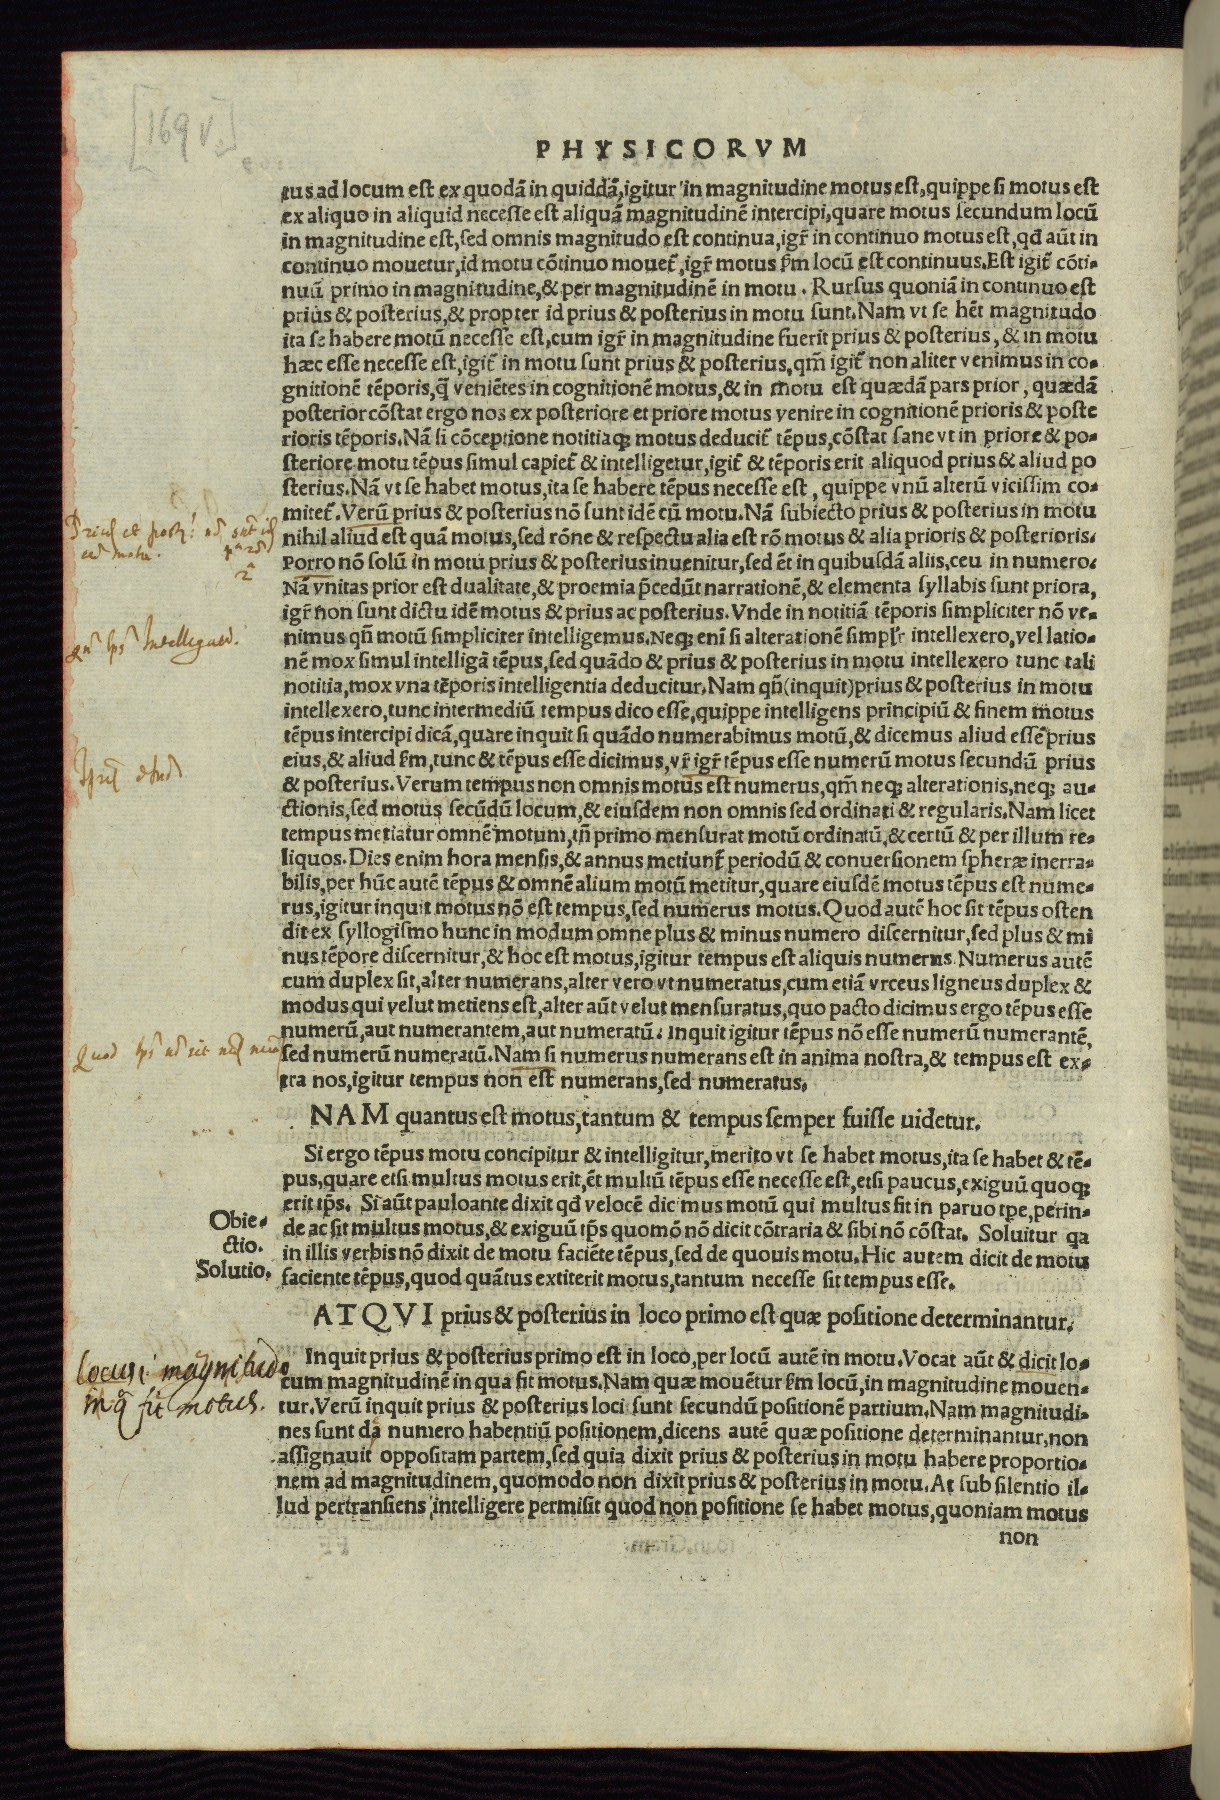 [169 v.]
PHYSICORVM
tus ad locum est ex quodā in quiddā, igitur in magnitudine motus est, quippe si motus est
ex aliquo in aliquid necesse est aliquā magnitudinē intercipi, quare motus secundum locū
in magnitudine est, sed omnis magnitudo est continua, igr̄ in continuo motus est, qđ aūt in
continuo mouetur, id motu cōtinuo mouet᷑, igr̄ motus s̄m locū est continuus. Est igit᷑ cōti-
nuū primo in magnitudine, & per magnitudinē in motu. Rursus quoniā in continuo est
prius & posterius, & propter id prius & posterius in motu sunt. Nam vt se hēt magnitudo
ita se habere motū necesse est, cum igr̄ in magnitudine fuerit prius & posterius, & in motu
hæc esse necesse est, igit᷑ in motu sunt prius & posterius, qm̄ igit᷑ non aliter venimus in co-
gnitionē tēporis, q̄ veniētes in cognitionē motus, & in motu est quædā pars prior, quædā
posterior cōstat ergo nos ex posteriore et priore motus venire in cognitionē prioris & poste
rioris tēporis. Nā si cōceptione notitiaq; motus deducit᷑ tēpus, cōstat sane vt in priore & po-
steriore motu tēpus simul capiet᷑ & intelligetur, igit᷑ & tēporis erit aliquod prius & aliud po
sterius. Nā vt se habet motus, ita se habere tēpus necesse est, quippe vnū alterū vicissim co-
mitet᷑. Verū prius & posterius nō sunt idē cū motu. Nā subiecto prius & posterius in motu
nihil aliud est quā motus, sed rōne & respectu alia est rō motus & alia prioris & posterioris.
Porro nō solū in motu prius & posterius inuenitur, sed ēt in quibusdā aliis, ceu in numero.
Nā vnitas prior est dualitate, & proemia p̄cedūt narrationē, & elementa syllabis sunt priora,
igr̄ non sunt dictu idē motus & prius ac posterius. Vnde in notitiā tēporis simpliciter nō ve-
nimus qn̄ motū simpliciter intelligemus. Neq; eni si alterationē simplr̄ intellexero, vel latio-
nē mox simul intelligā tēpus, sed quādo & prius & posterius in motu intellexero tunc tali
notitia, mox vna tēporis intelligentia deducitur. Nam qn̄ (inquit) prius & posterius in motu
intellexero, tunc intermediū tempus dico esse, quippe intelligens principiū & finem motus
tēpus intercipi dicā, quare inquit si quādo numerabimus motū, & dicemus aliud esse prius
eius, & aliud s̄m, tunc & tēpus esse dicimus, vr̄ igr̄ tēpus esse numerū motus secundū prius
& posterius. Verum tempus non omnis motus est numerus, qm̄ neq; alterationis, neq; au-
ctionis, sed motus secūdū locum, & eiusdem non omnis sed ordinati & regularis. Nam licet
tempus metiatur omnē motum, tn̄ primo mensurat motū ordinatū, & certū & per illum re-
liquos. Dies enim hora mensis, & annus metiunt᷑ periodū & conuersionem spheræ inerra-
bilis, per hūc autē tēpus & omnē alium motū metitur, quare eiusdē motus tēpus est nume-
rus, igitur inquit motus nō est tempus, sed numerus motus. Quod autē hoc sit tēpus osten
dit ex syllogismo hunc in modum omne plus & minus numero discernitur, sed plus & mi
nus tēpore discernitur, & hoc est motus, igitur tempus est aliquis numerus. Numerus autē
cum duplex sit, alter numerans, alter vero vt numeratus, cum etiā vrceus ligneus duplex &
modus qui velut metiens est, alter aūt velut mensuratus, quo pacto dicimus ergo tēpus esse
numerū, aut numerantem, aut numeratū. Inquit igitur tēpus nō esse numerū numerantē,
sed numerū numeratū. Nam si numerus numerans est in anima nostra, & tempus est ex-
tra nos, igitur tempus non est numerans, sed numeratus.
NAM quantus est motus, tantum & tempus semper fuisse uidetur.
Si ergo tēpus motu concipitur & intelligitur, merito vt se habet motus, ita se habet & tē-
pus, quare etsi multus motus erit, ēt multū tēpus esse necesse est, etsi paucus, exiguū quoq;
erit tp̄s. Si aūt pauloante dixit qđ velocē dicimus motū qui multus fit in paruo tp̄e, perin-
de ac sit multus motus, & exiguū tp̄s quomō nō dicit cōtraria & sibi nō cōstat. Soluitur qa
in illis verbis nō dixit de motu faciēte tēpus, sed de quouis motu. Hic autem dicit de motu
faciente tēpus, quod quātus extiterit motus, tantum necesse sit tempus esse.
Obie-
ctio.
Solutio.
ATQVI prius & posterius in loco primo est quæ positione determinantur.
Inquit prius & posterius primo est in loco, per locū autē in motu. Vocat aūt & dicit lo-
cum magnitudinē in qua fit motus. Nam quæ mouētur s̄m locū, in magnitudine mouen-
tur. Verū inquit prius & posterius loci sunt secundū positionē partium. Nam magnitudi-
nes sunt dā numero habentiū positionem, dicens autē quæ positione determinantur, non
assignauit oppositam partem, sed quia dixit prius & posterius in motu habere proportio-
nem ad magnitudinem, quomodo non dixit prius & posterius in motu. At sub silentio il-
lud pertransiens, intelligere permisit quod non positione se habet motus, quoniam motus
non
locus: magnitudo
in qa fit motus.